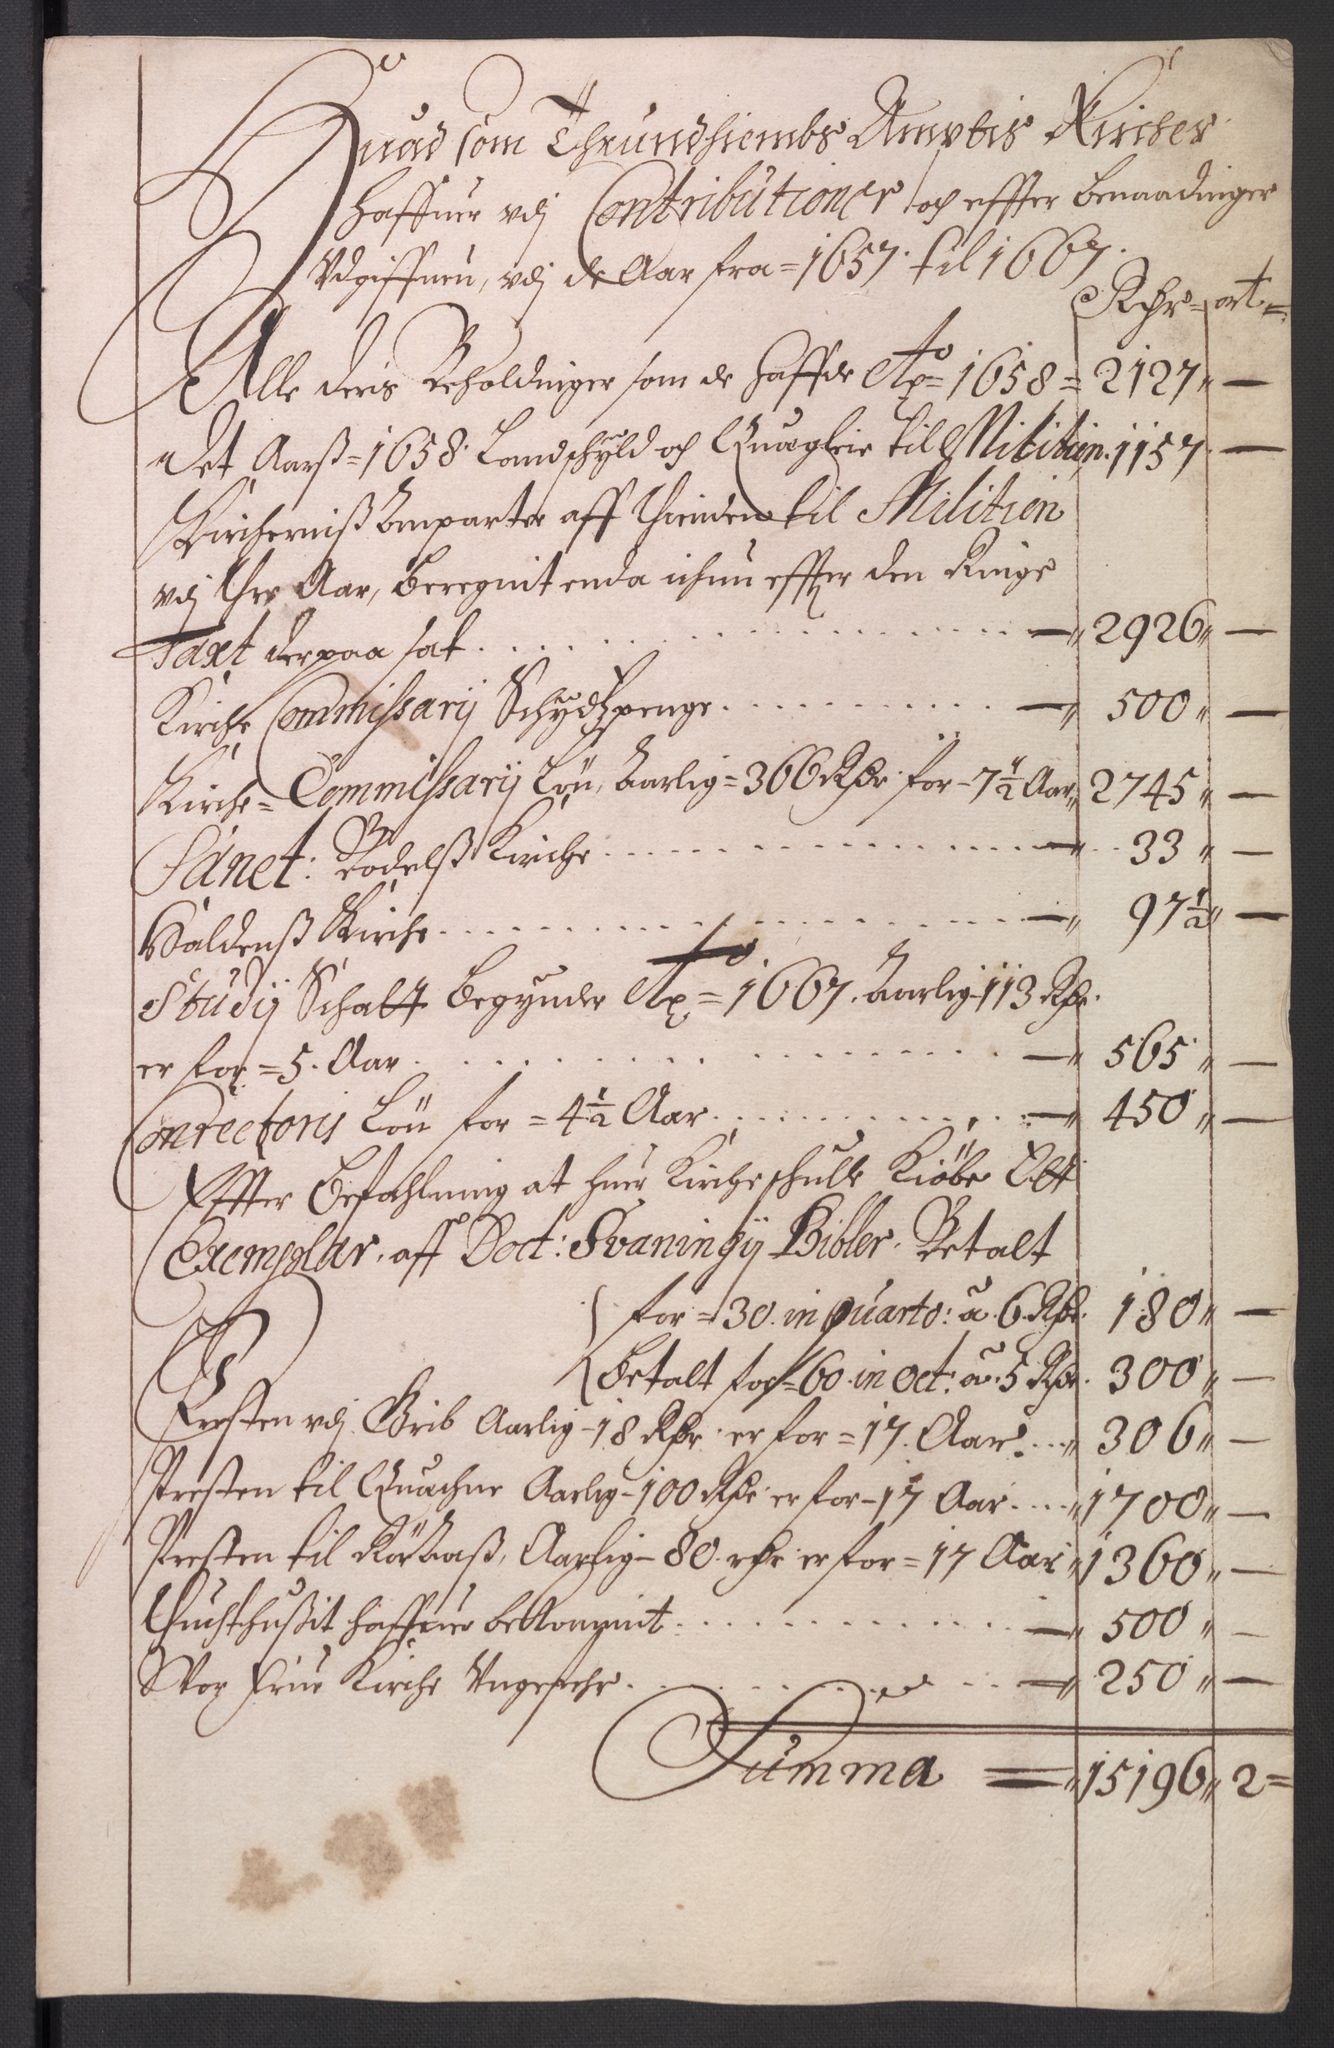 Huad som Thrundhiembs Ambtis Kircher
Haffuer vdj Contributioner och effter benaadinger
Vdgiffuen, vdj de Aar fra = 1657. til 1667.
Rdr = ort =
Alle deris Beholdninger som de haffde Ao = 1658 = 2127 " —
det Aarß = 1658. Landschyld och Quægleie til Militien. 1157 —
Kircherniß Anparter aff thienden til Militien
vdj thre Aar, beregnit enda ichun effter den Ringe
Taxt derpaa sat . . . . — " 2926 " —
Kirche Commissarij Schydtzpenge . . . . — " 500 " —
Kirche = Commissarij Løn, Aarlig = 366 Rdr for - 7 1/2 Aar " 2745 " —
Lånet: Bodelß Kirche . . . . — 33 " —
Haldenß Kirche . . . . — " 97 1/2 " —
Studij Schatt begynder Ao = 1667. Aarlig - 113 Rdr.
er for = 5. Aar . . . . — " 565 " —
Conrectoris Løn for = 4 1/2 Aar . . . . — " 450 " —
Effter Befahlning at huer Kirche schulle Kiøbe Ett
Exemplar. aff Doct: Svaningij Bibler. Betalt
for = 30. in quarto: a. 6. Rdr. 180 " —
Betalt for = 60. in Oct: a. 5 Rdr. 300 " —
Presten vdj Grib Aarlig - 18 Rdr. er for = 17. Aar . . . " 306 " —
Presten til Quachne Aarlig - 100 Rdr er for - 17 Aar . . . " 1700 " —
Presten til Røraaß, Aarlig - 80. rdr er for = 17 Aar " 1360 " —
Thuchthußit haffuer bekommit . . . . — " 500 " —
Wor Frue Kirche Vngefehr . . . . — " 250 " —
Summa = " 15196 " 2 =